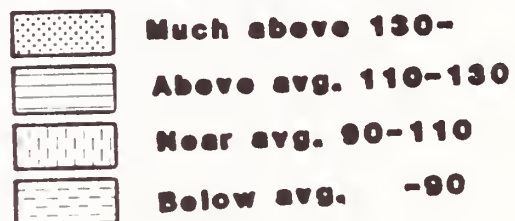 Much above 130-
Above avg. 110-130
Near avg. 90-110
Below avg. -90